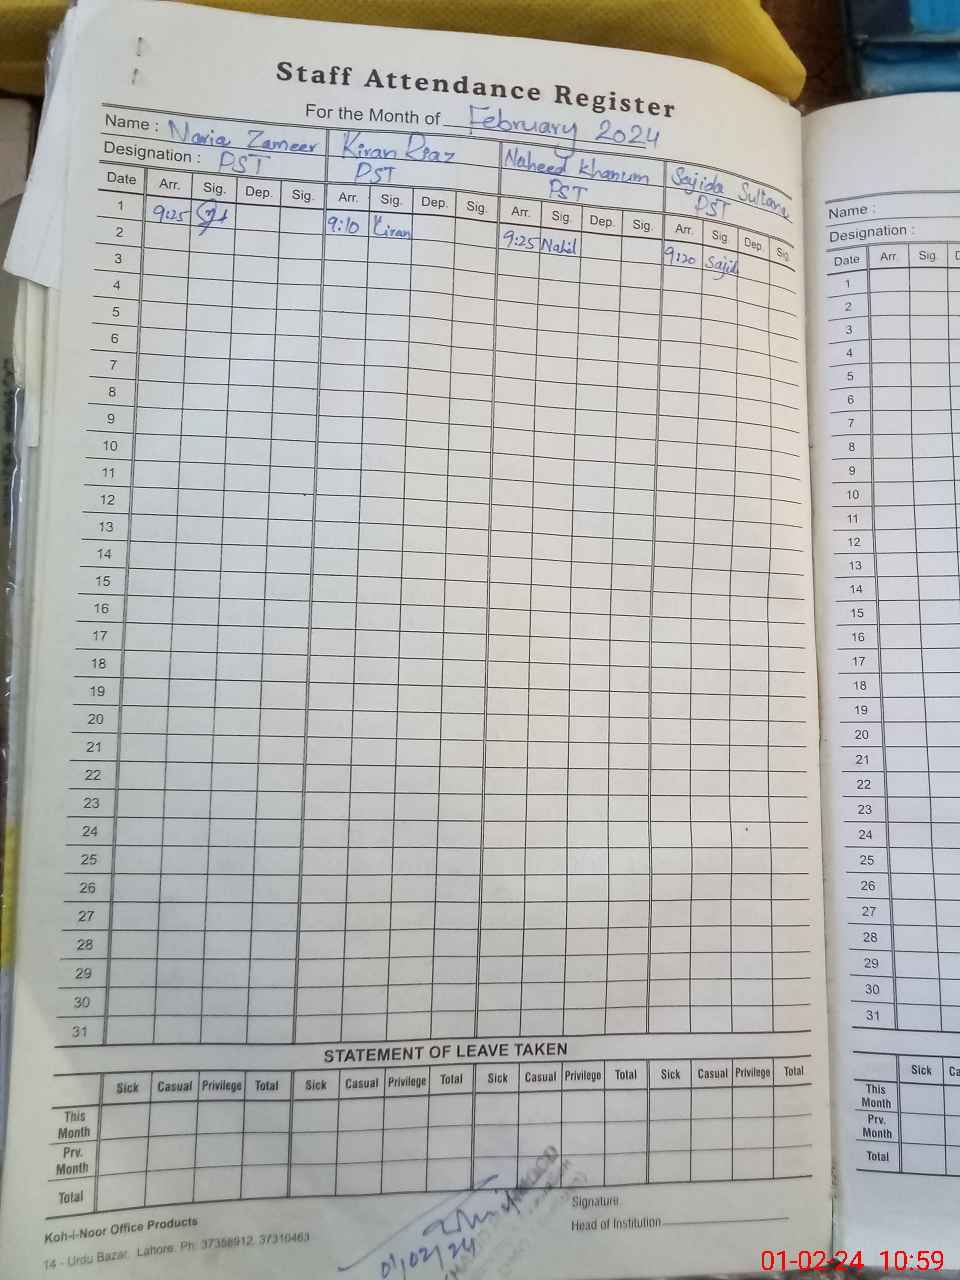 Staff Attendance Register
For the Month of February 2024
Name : Naria Zameer Kiran Riaz Naheed Khanum Sajida Sultana
Designation : PST PST PST PST
Date Arr. Sig. Dep. Sig. Arr. Sig. Dep. Sig. Arr. Sig. Dep. Sig. Arr. Sig. Dep. Sig.
1 9:25 9:10 Kiran 9:25 Nahid 9:20 Sajid
2
3
4
5
6
7
8
9
10
11
12
13
14
15
16
17
18
19
20
21
22
23
24
25
26
27
28
29
30
31
STATEMENT OF LEAVE TAKEN
Sick Casual Privilege Total Sick Casual Privilege Total Sick Casual Privilege Total Sick Casual Privilege Total
This Month
Prv. Month
Total
Signature
Head of Institution
01/02/24
Koh-i-Noor Office Products
14 - Urdu Bazar, Lahore. Ph: 37358912, 37310463
Name :
Designation :
Date Arr. Sig. D
1
2
3
4
5
6
7
8
9
10
11
12
13
14
15
16
17
18
19
20
21
22
23
24
25
26
27
28
29
30
31
Sick Ca
This Month
Prv. Month
Total
01-02-24 10:59